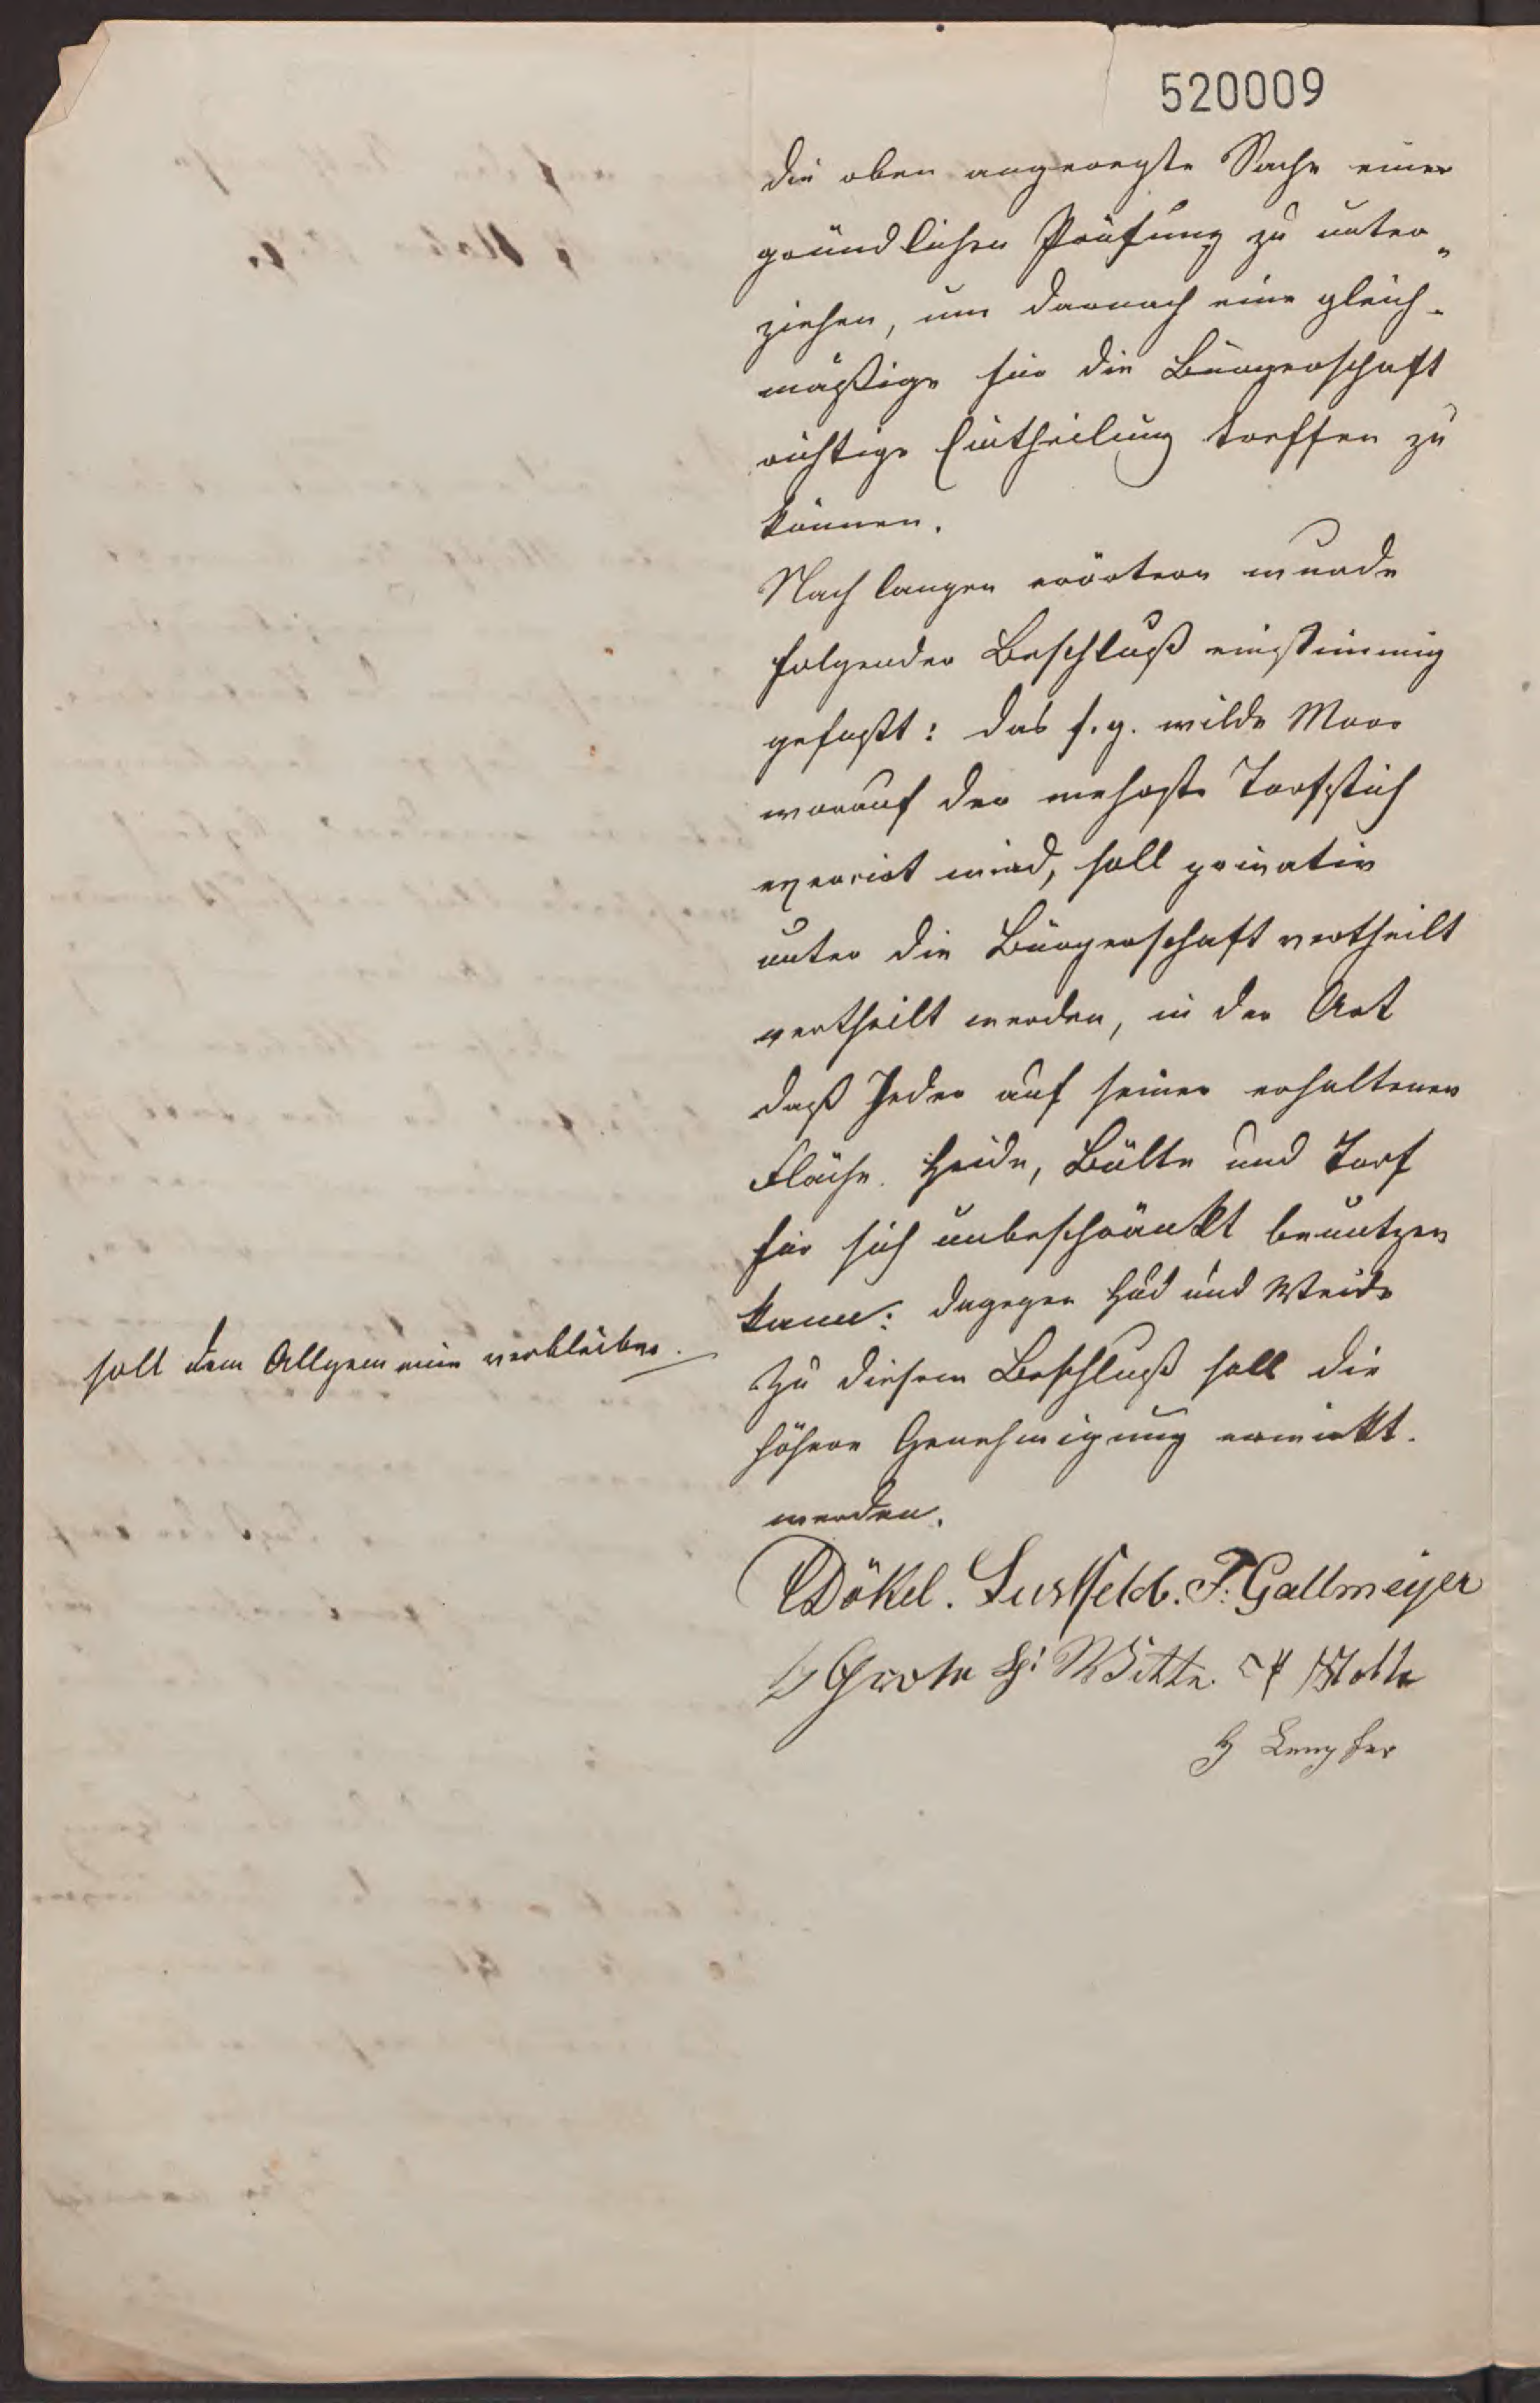 520009
die oben angeregte Sache einer
gründlichen Prüfung zu unter„
ziehen, um darnach eine gleich-
mäßige für die Bürgerschaft
richtige Eintheilung treffen zu
können.
Nach langen erörtern wurde
folgender Beschluß einstimmig
gefaßt: das s. g. wilde Moor
worauf der mehrste Torfstich
exercirt wird, soll privativ
unter die Bürgerschaft vertheilt
vertheilt werden, in der Art
daß Jeder auf seiner erhaltenen
Fläche. Heide, Bülte und Torf
für sich unbeschränkt benutzen
kann: dagegen Hud und Weide
soll dem Allgemeinen verbleiben.
Zu diesem Beschluß soll die
höhere Genehmigung erwirkt.
werden.
Dökel. Lustfeld. F. Gallmeyer
Grote Witte. Nolte
H